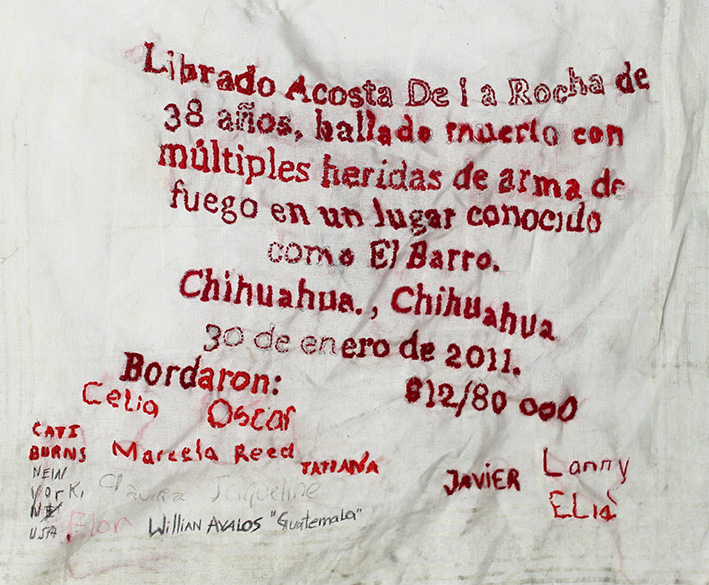 Librado Acosta De la Rocha de
38 años, hallado muerto con
múltiples heridas de arma de
fuego en un lugar conocido
como El Barro.
Chihuahua., Chihuahua
30 de enero de 2011.
Bordaron: 812/80 000
Celia Oscar
CATI
BURNS Marcela Reed TATIANA
JAVIER Lanny
NEW
York, Jaqueline
NY ELIA
USA. WILLIAN AVALOS "Guatemala"